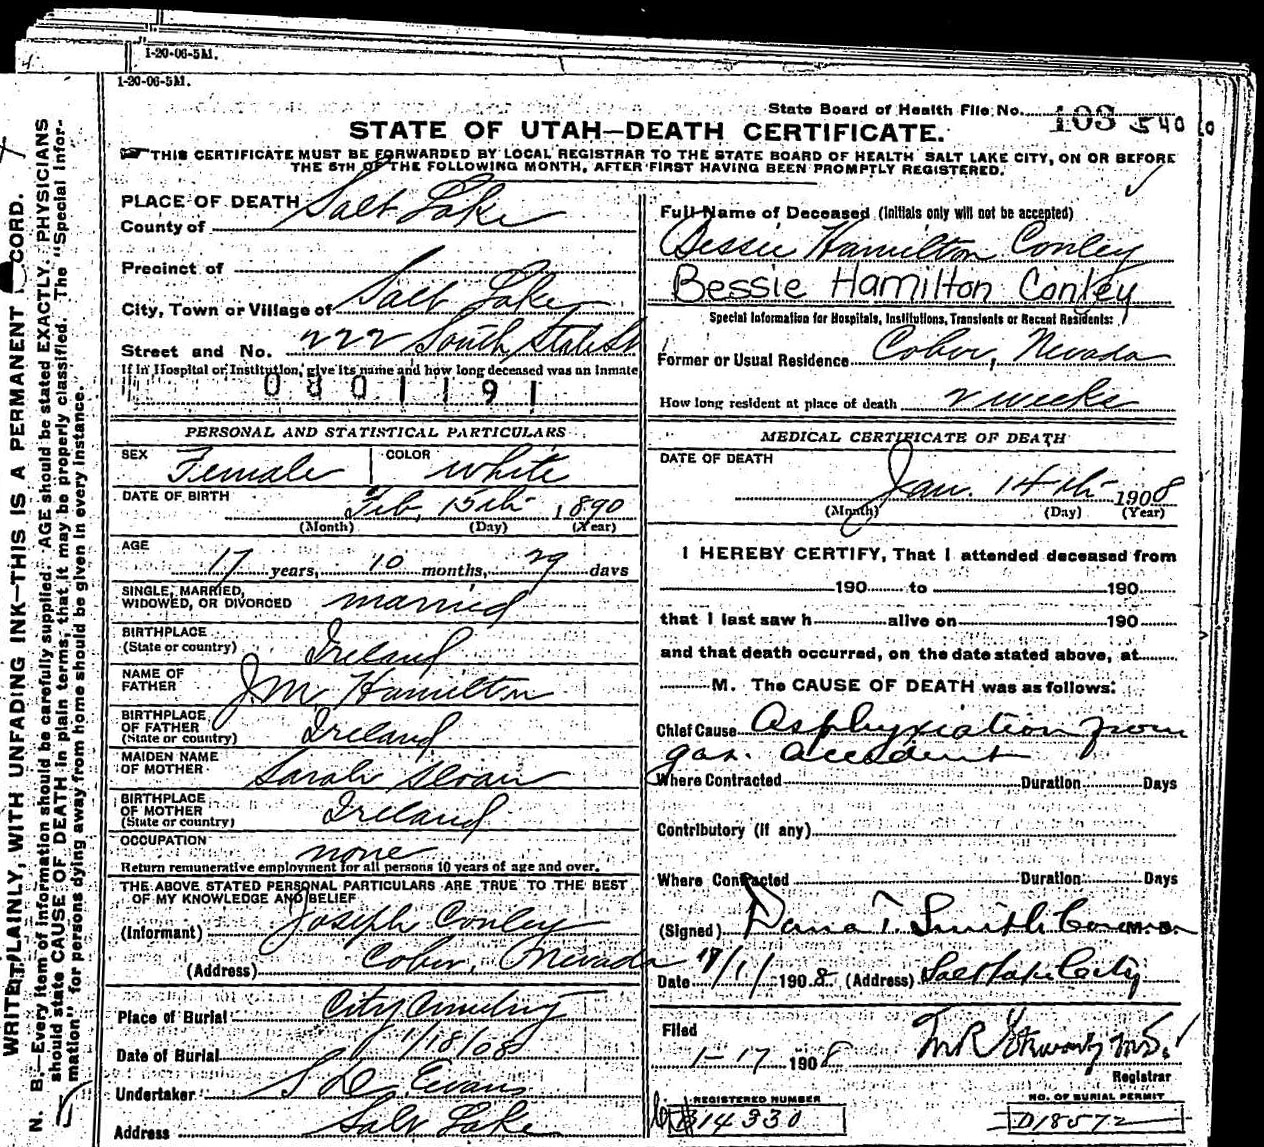 1-20-06-5M.
1-20-06-5M.
State Board of Health File No. 103 540
STATE OF UTAH—DEATH CERTIFICATE.
THIS CERTIFICATE MUST BE FORWARDED BY LOCAL REGISTRAR TO THE STATE BOARD OF HEALTH SALT LAKE CITY, ON OR BEFORE
THE 5TH OF THE FOLLOWING MONTH, AFTER FIRST HAVING BEEN PROMPTLY REGISTERED.
WRITE PLAINLY, WITH UNFADING INK—THIS IS A PERMANENT RECORD.
N. B.—Every item of information should be carefully supplied. AGE should be stated EXACTLY. PHYSICIANS
should state CAUSE OF DEATH in plain terms, that it may be properly classified. The "Special Infor-
mation" for persons dying away from home should be given in every instance.
PLACE OF DEATH
County of Salt Lake
Precinct of
City, Town or Village of Salt Lake
Street and No. 222 South State St
If in Hospital or Institution, give its name and how long deceased was an inmate
0801191
PERSONAL AND STATISTICAL PARTICULARS
SEX Female COLOR White
DATE OF BIRTH Feb, 15th 1890
(Month) (Day) (Year)
AGE
17 years, 10 months, 29 days
SINGLE, MARRIED,
WIDOWED, OR DIVORCED married
BIRTHPLACE
(State or country) Ireland
NAME OF
FATHER J.M. Hamilton
BIRTHPLACE
OF FATHER
(State or country) Ireland
MAIDEN NAME
OF MOTHER Sarah Sloan
BIRTHPLACE
OF MOTHER
(State or country) Ireland
OCCUPATION none
Return remunerative employment for all persons 10 years of age and over.
THE ABOVE STATED PERSONAL PARTICULARS ARE TRUE TO THE BEST
OF MY KNOWLEDGE AND BELIEF
(Informant) Joseph Conley
(Address) Cober, Nevada
Place of Burial City Cemetery
Date of Burial 1/18/08
Undertaker S D Evans
Address Salt Lake
Full Name of Deceased (Initials only will not be accepted)
Bessie Hamilton Conley
Bessie Hamilton Conley
Special Information for Hospitals, Institutions, Transients or Recent Residents:
Former or Usual Residence Cober, Nevada
How long resident at place of death 2 weeks
MEDICAL CERTIFICATE OF DEATH
DATE OF DEATH
Jan. 14th 1908
(Month) (Day) (Year)
I HEREBY CERTIFY, That I attended deceased from
190 to 190
that I last saw h alive on 190
and that death occurred, on the date stated above, at
M. The CAUSE OF DEATH was as follows:
Chief Cause Asphyxiation from
gas. accident
Where Contracted Duration Days
Contributory (if any)
Where Contracted Duration Days
(Signed) Dana T. Smith Coroner M. D.
Date 1908 (Address) Salt Lake City
Filed
1-17 1908
Registrar
REGISTERED NUMBER
B14330
NO. OF BURIAL PERMIT
D18572